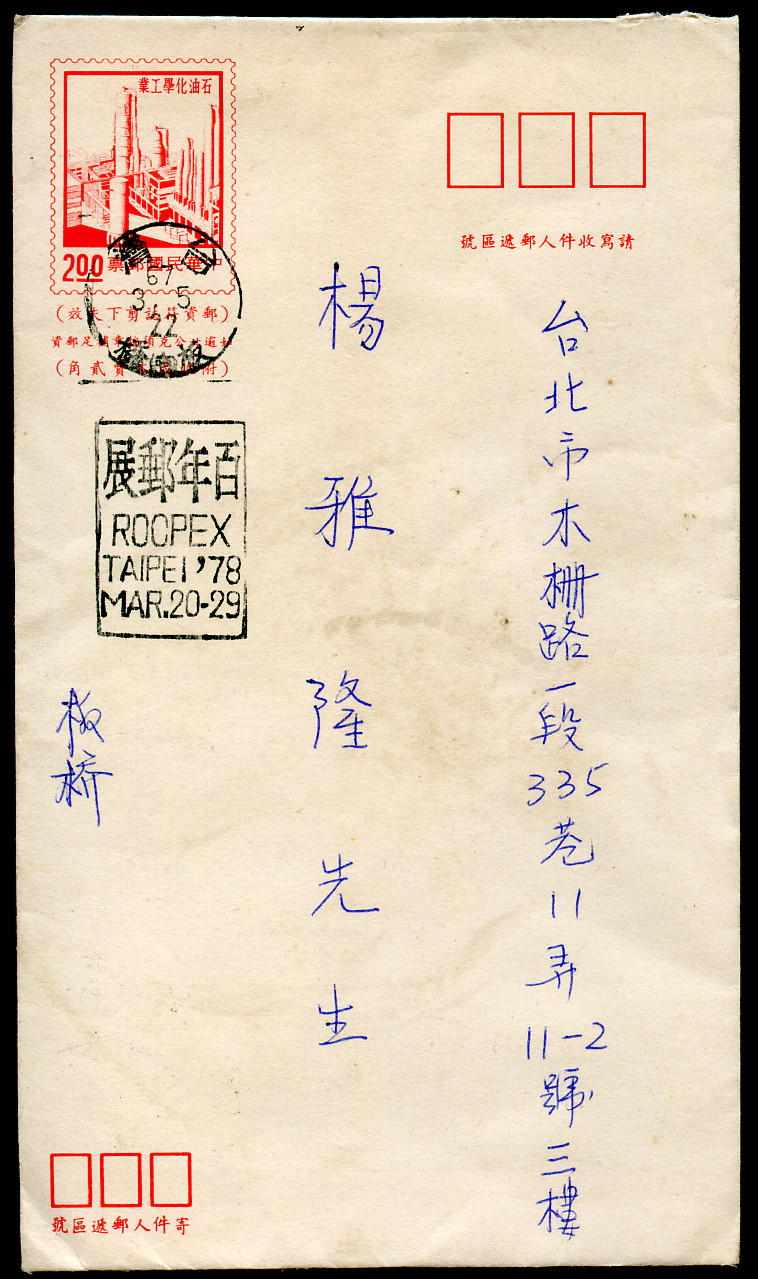 石油化學工業
2.00
中華民國郵票
(郵資符誌剪下失效)
台灣
67
3.5
22
百年郵展
ROCPEX
TAIPEI '78
MAR.20-29
請寫收件人郵遞區號
台北市木柵路一段335巷11弄11-2號三樓
楊雅隆先生
板桥
寄件人郵遞區號